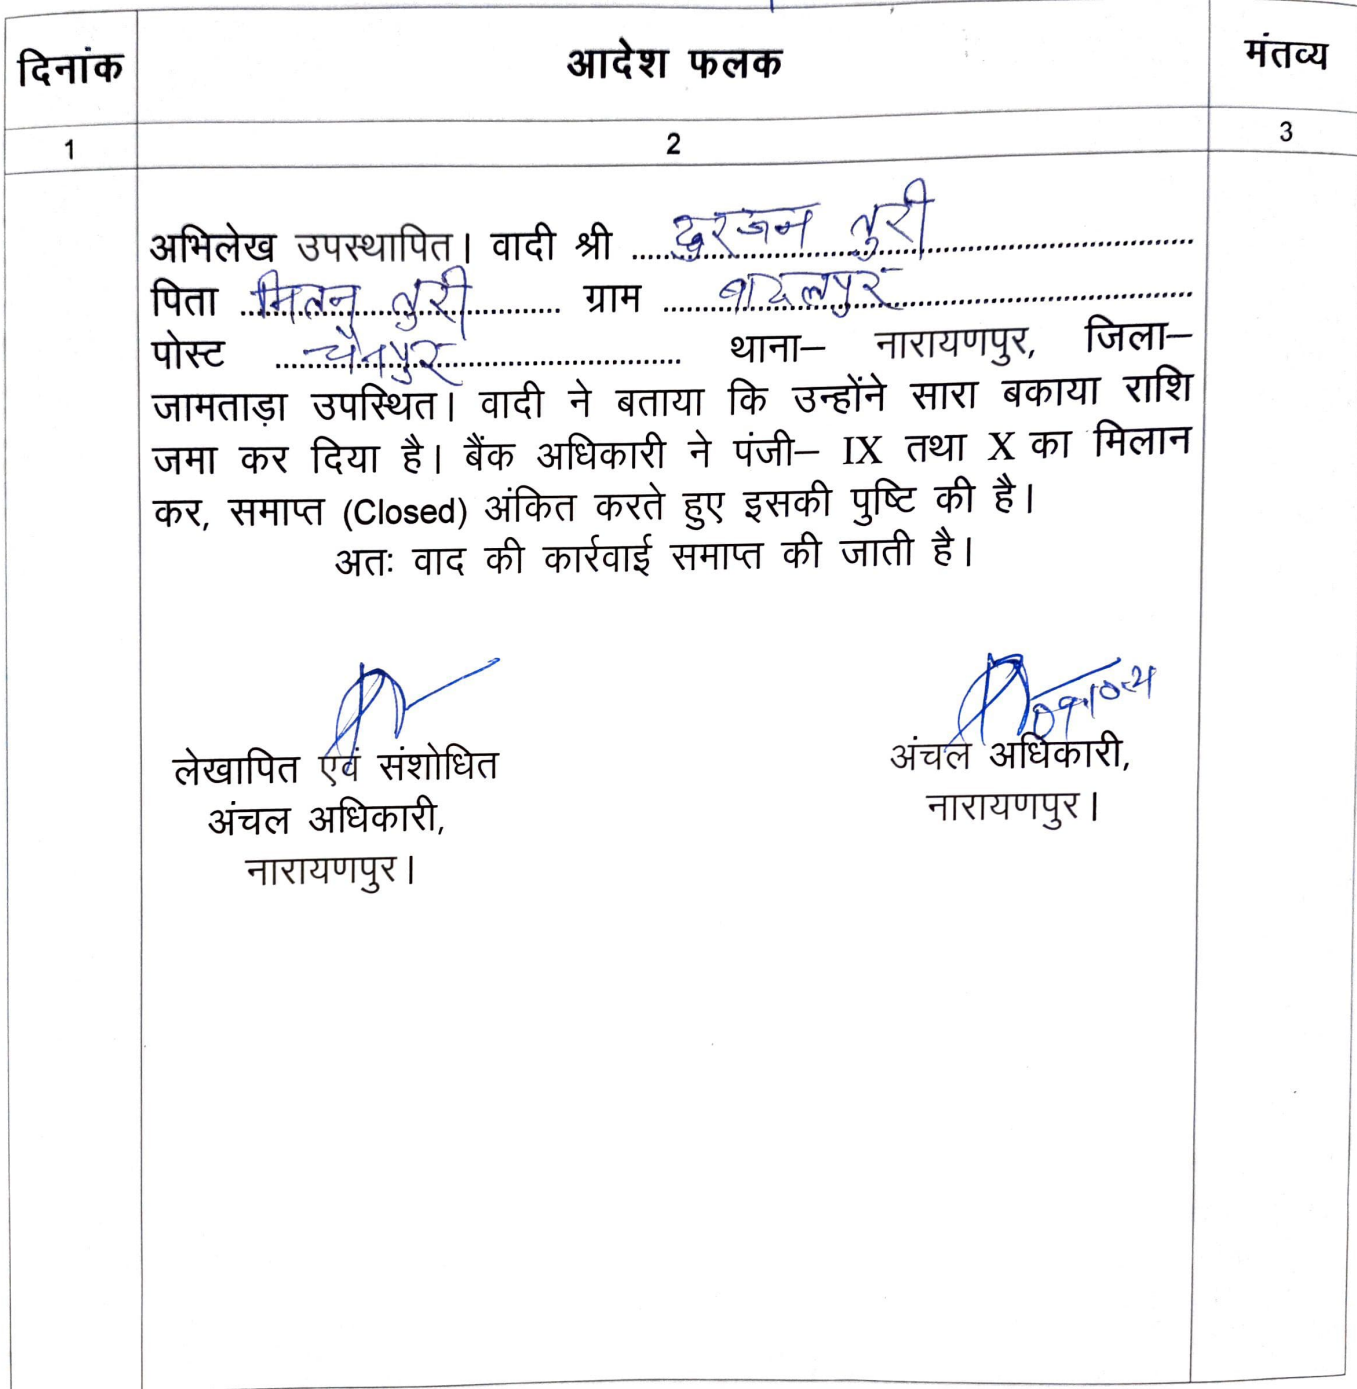 दिनांक आदेश फलक मंतव्य
1 2 3
अभिलेख उपस्थापित। वादी श्री दुरजन तुरी
पिता मितन तुरी ग्राम बादलपुर
पोस्ट चैनपुर थाना– नारायणपुर, जिला–
जामताड़ा उपस्थित। वादी ने बताया कि उन्होंने सारा बकाया राशि
जमा कर दिया है। बैंक अधिकारी ने पंजी– IX तथा X का मिलान
कर, समाप्त (Closed) अंकित करते हुए इसकी पुष्टि की है।
अतः वाद की कार्रवाई समाप्त की जाती है।
लेखापित एवं संशोधित
अंचल अधिकारी,
नारायणपुर।
अंचल अधिकारी,
नारायणपुर।